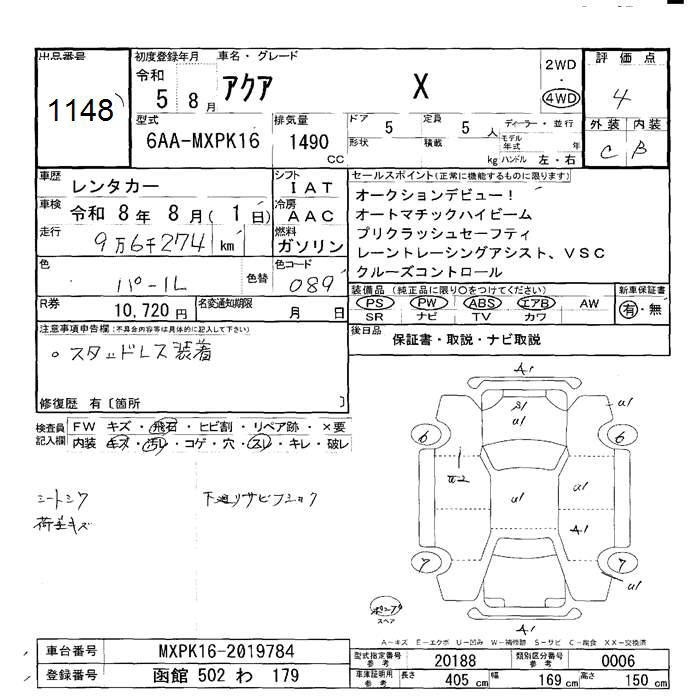 出品番号 初度登録年月 車名・グレード 2WD 評価点
1148 令和 5年 8月 アクア X ・ 4WD 4
型式 排気量 ドア 5 定員 5人 ディーラー・並行 外装 内装
6AA-MXPK16 1490 CC 形状 積載 kg モデル年式 年 ハンドル 左・右 C B
車歴 レンタカー シフト IAT セールスポイント(正常に機能するものに限ります)
車検 令和 8年 8月( 1日) 冷房 AAC オークションデビュー!
オートマチックハイビーム
走行 9万6千274 km 燃料 ガソリン プリクラッシュセーフティ
レーントレーシングアシスト、VSC
色 パール 色替 色コード 089 クルーズコントロール
R券 10,720円 名変通知期限 月 日 装備品 (純正品に限り○をつけてください) 新車保証書
PS PW ABS エアB AW 有・無
SR ナビ TV カワ
注意事項申告欄:(不具合内容等は具体的に記入して下さい) 後日品 保証書・取説・ナビ取説
○スタッドレス装着
修復歴 有〔箇所 〕
検査員記入欄 FW キズ・飛石・ヒビ割・リペア跡・×要
内装 キズ・汚レ・コゲ・穴・スレ・キレ・破レ
シートシワ 下廻リサビフショク
荷室キズ
A1
A1 U1
U1
6 6
U2 U1 U1
A1
7 7
U1
スペア
A1
A-キズ E-エクボ U-凹み W-補修跡 S-サビ C-腐食 XX-交換済
車台番号 MXPK16-2019784 型式指定番号 参考 20188 類別区分番号 参考 0006
登録番号 函館 502 わ 179 車庫証明用 参考 長さ 405 cm 幅 169 cm 高さ 150 cm